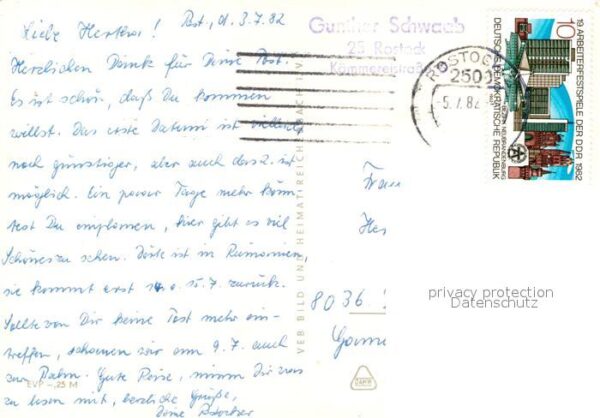 Liebe Herta! Rost., d. 3.7.82
Herzlichen Dank für Deine Post.
Es ist schön, daß Du kommen
willst. Das erste Datum ist vielleicht
noch günstiger, aber auch das 2. ist
möglich. Ein paar Tage mehr könn-
test Du einplanen, hier gibt es viel
Schönes zu sehen. Dörte ist in Rumänien,
sie kommt erst 5.7. zurück.
Sollte von Dir keine Post mehr ein-
treffen, schauen wir am 9.7. auch
zur Bahn. Gute Reise, nimm Dir was
zu lesen mit, herzliche Grüße,
Deine Rostocker
EVP -,25 M
VEB BILD UND HEIMAT REICHENBACH I. V.
Gunther Schwaab
25 Rostock
ROSTOCK
2500
-5.7.82
10
19. ARBEITERFESTSPIELE DER DDR 1982
DEUTSCHE DEMOKRATISCHE REPUBLIK
BEZIRK NEUBRANDENBURG
Frau
Her
8036
privacy protection
Datenschutz